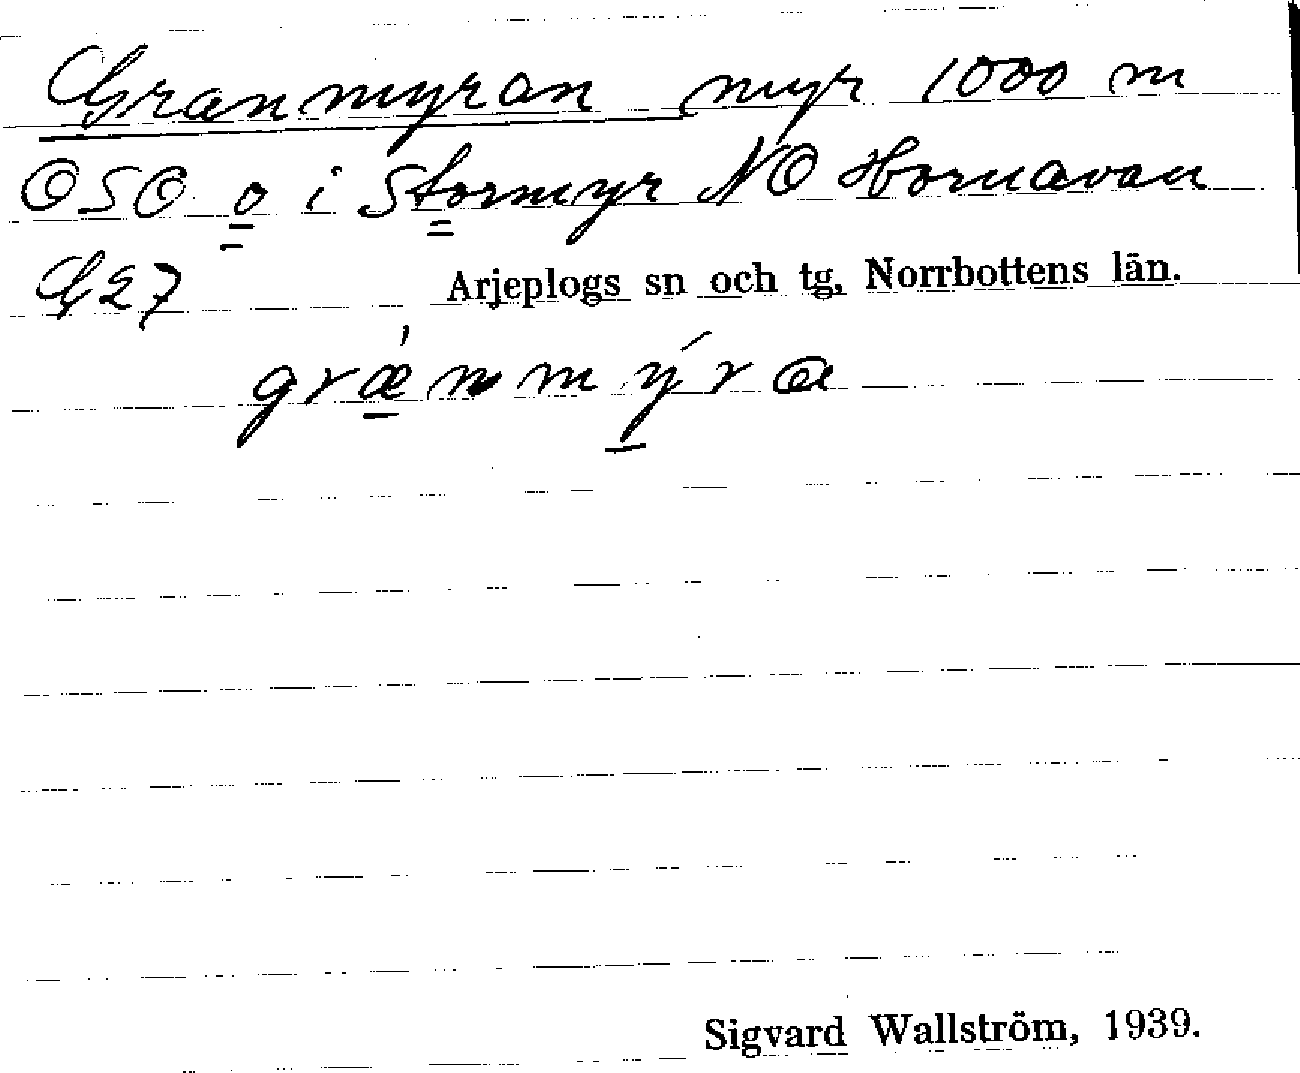 Granmyran myr 1000 m
OSO o i Stormyr NO Hornavan
G27 Arjeplogs sn och tg, Norrbottens län.
græ̀nmýra
Sigvard Wallström, 1939.